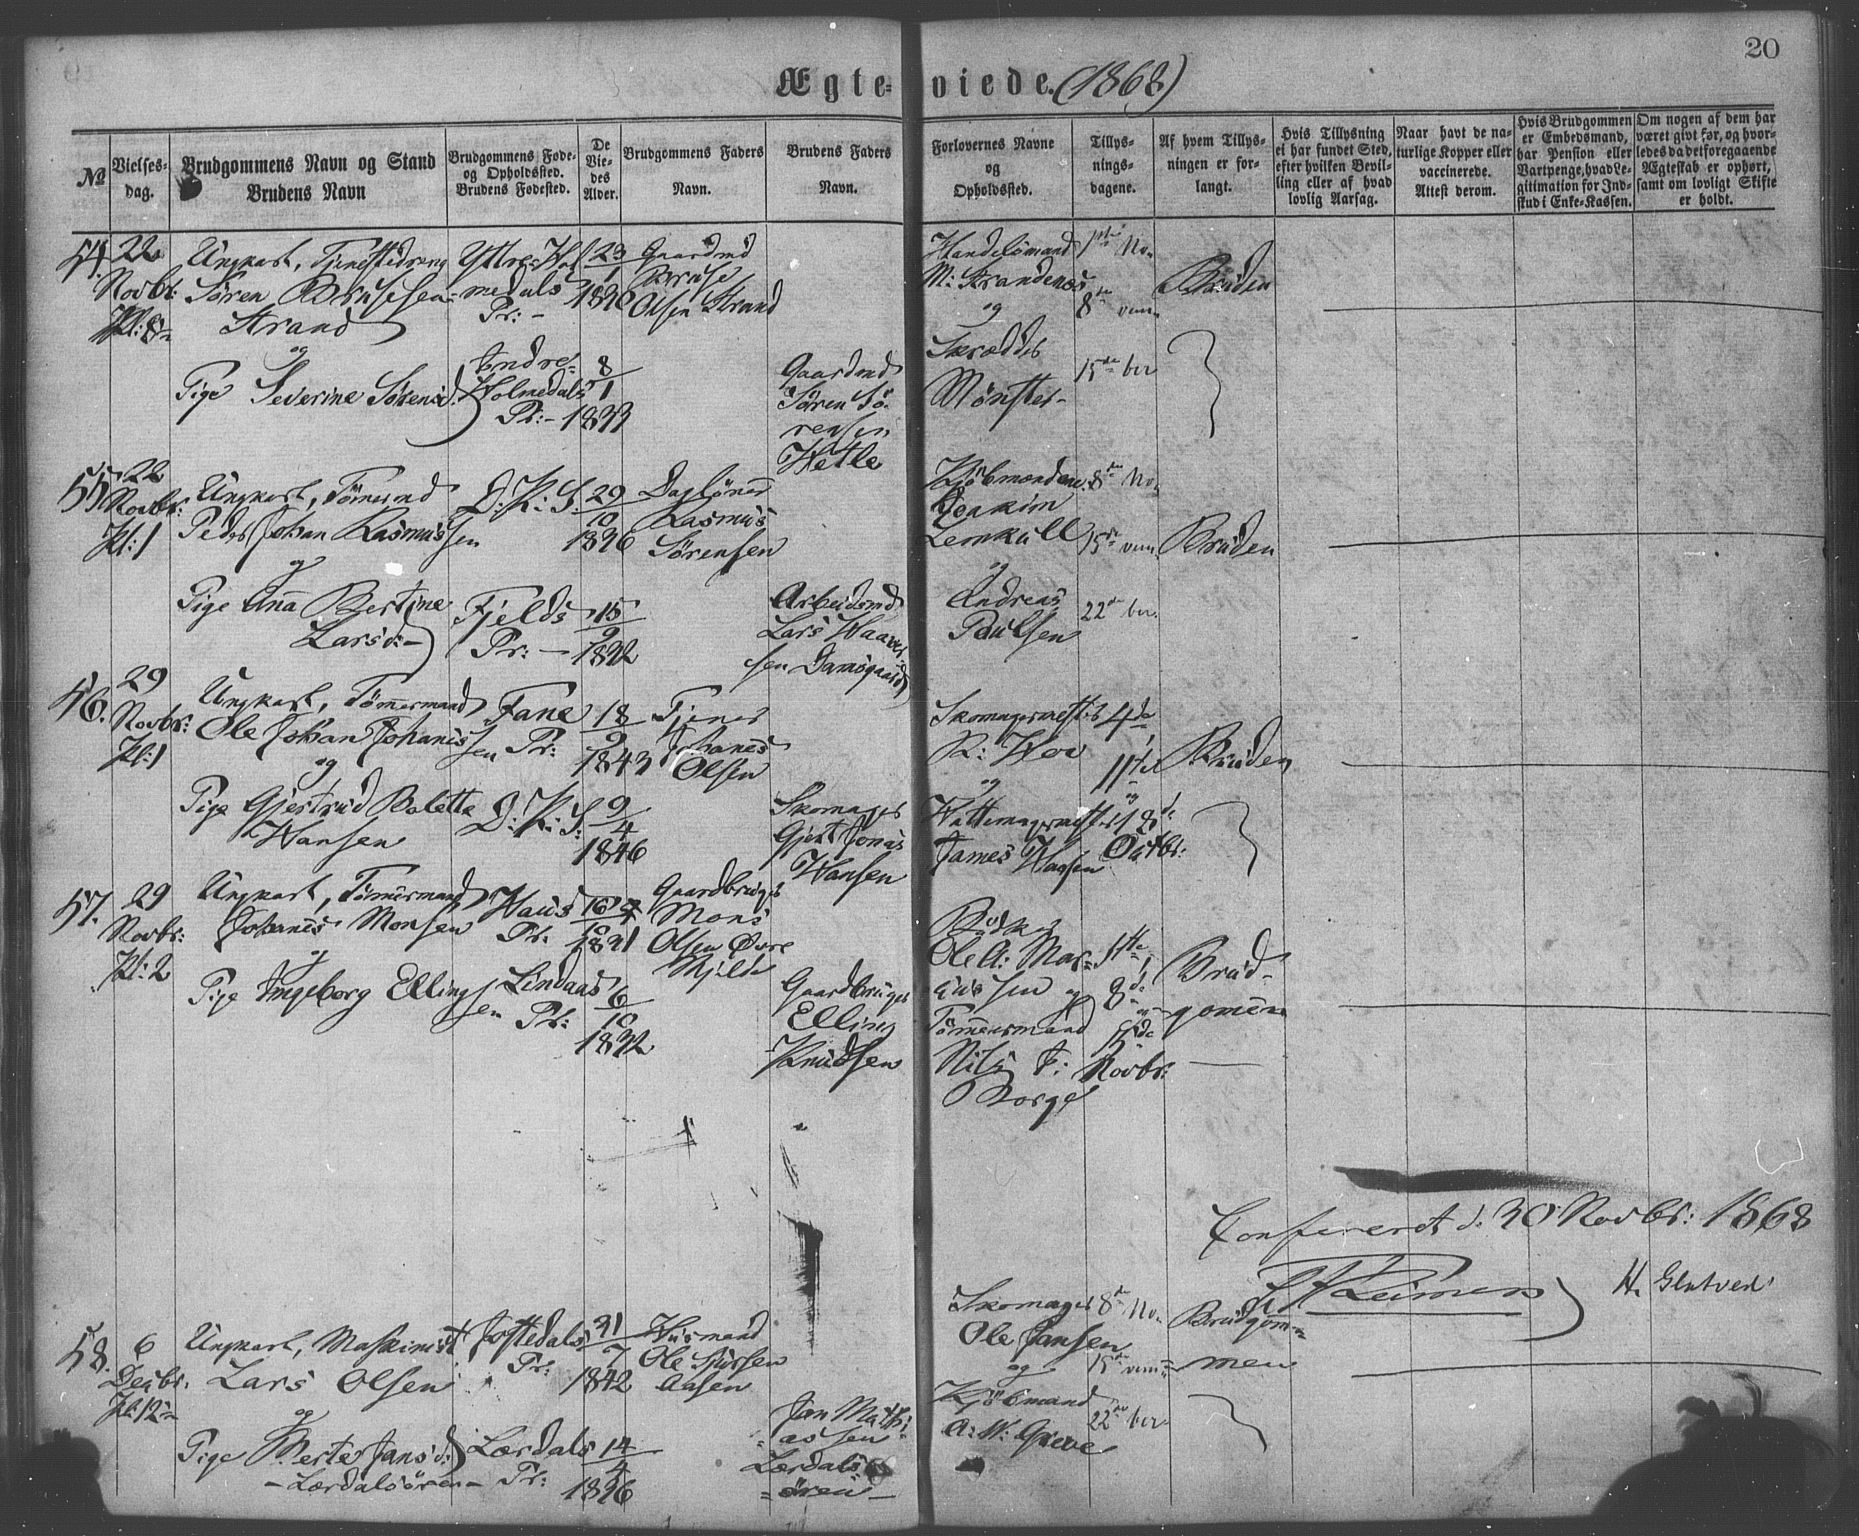 20
Ægteviede. (1868)
№
Vielses-
dag.
Brudgommens Navn og Stand
Brudens Navn
Brudgommens Føde-
og Opholdssted.
Brudens Fødested.
De
Vie-
des
Alder.
Brudgommens Faders
Navn.
Brudens Faders
Navn.
Forlovernes Navne
og
Opholdssted.
Tillys-
nings-
dagene.
Af hvem Tillys-
ningen er for-
langt.
Hvis Tillysning
ei har fundet Sted,
efter hvilken Bevil-
ling eller af hvad
lovlig Aarsag.
Naar havt de na-
turlige Kopper eller
vaccinerede.
Attest derom.
Hvis Brudgommen
er Embedsmand,
har Pension eller
Vartpenge, hvad Le-
gitimation for Ind-
skud i Enke-Kassen.
Om nogen af dem har
været givt før, og hvor-
ledes da det foregaaende
Ægteskab er ophørt,
samt om lovligt Skifte
er holdt.
54.
22
Novbr:
Kl: 8
Ungkarl, Tjenestedreng
Søren Brusesen
Strand
og
Pige Severine Sørensd:
Yttre Hol-
medals
Pr:
Indre
Holmedals
Pr:
23
1
8
1
Gaardmd
Bruse
Olsen Strand
Gaardmd
Søren Sø-
rensen
Wetle
Handelsmand
M: Strandenæs
og
Skrædder
Mønster
1ste No-
8de vem-
15de ber
Bruden
55
22
Novbr:
Kl: 1
Ungkarl, Tømmermd
Peder Johan Rasmussen
og
Pige Ana Bertine
Larsd:
D: K: S:
Fjelds
Pr:
29
10
15
9
Daglønner
Rasmus
Sørensen
Arbeidsmd
Lars Haaver
sen Damsgaard
Kjøbmændene
Joakim
Lemkull
og
Andreas
Paulsen
8de No-
15de vem-
22de ber.
Bruden
56.
29
Novbr:
Kl: 1
Ungkarl, Tømmermand
Ole Johan Johannessen
og
Pige Gjertrud Bolette
Hansen
Fane
Pr:
D: K: S:
18
9
1843
9
4
1846
Tjener
Johannes
Olsen
Skomager
Gjert Jonas
Hansen
Skomagermester
R: Hov
og
Hattemagermester
James Haasen
4de,
11te
og
18de
Octbr:
Bruden
57.
29
Novbr:
Kl: 2
Ungkarl, Tømmermand
Johannes Monsen
og
Pige Ingeborg Ellingsen
Haus
Pr:
Lindaas
Pr:
16
10
6
10
Gaardbruger
Mons
Olsen Øvre
Gaardbruger
Elling
Knudsen
Bødker
Ole A: Mar-
cussen og
Tømmermand
Nils J:
Borge
1ste,
8de
og
15de
Novbr:
Brud-
gommen
Confereret d: 30 Novbr: 1868
H. Glatved
58.
6
Decbr.
Kl: 12
Ungkarl, Maskinist
Lars Olsen
og
Pige Berte Jansd:
Lærdalsøren
Jostedals
Pr:
Lærdals
Pr:
31
7
1842
14
4
Husmand
Ole Sjursen
Aasen
Jan Mathi-
assen
Lærdals-
øren
Skomager
Ole Jansen
og
Kjøbmand
A: W: Greve
8de No-
15de vem-
22de ber
Brudgom-
men